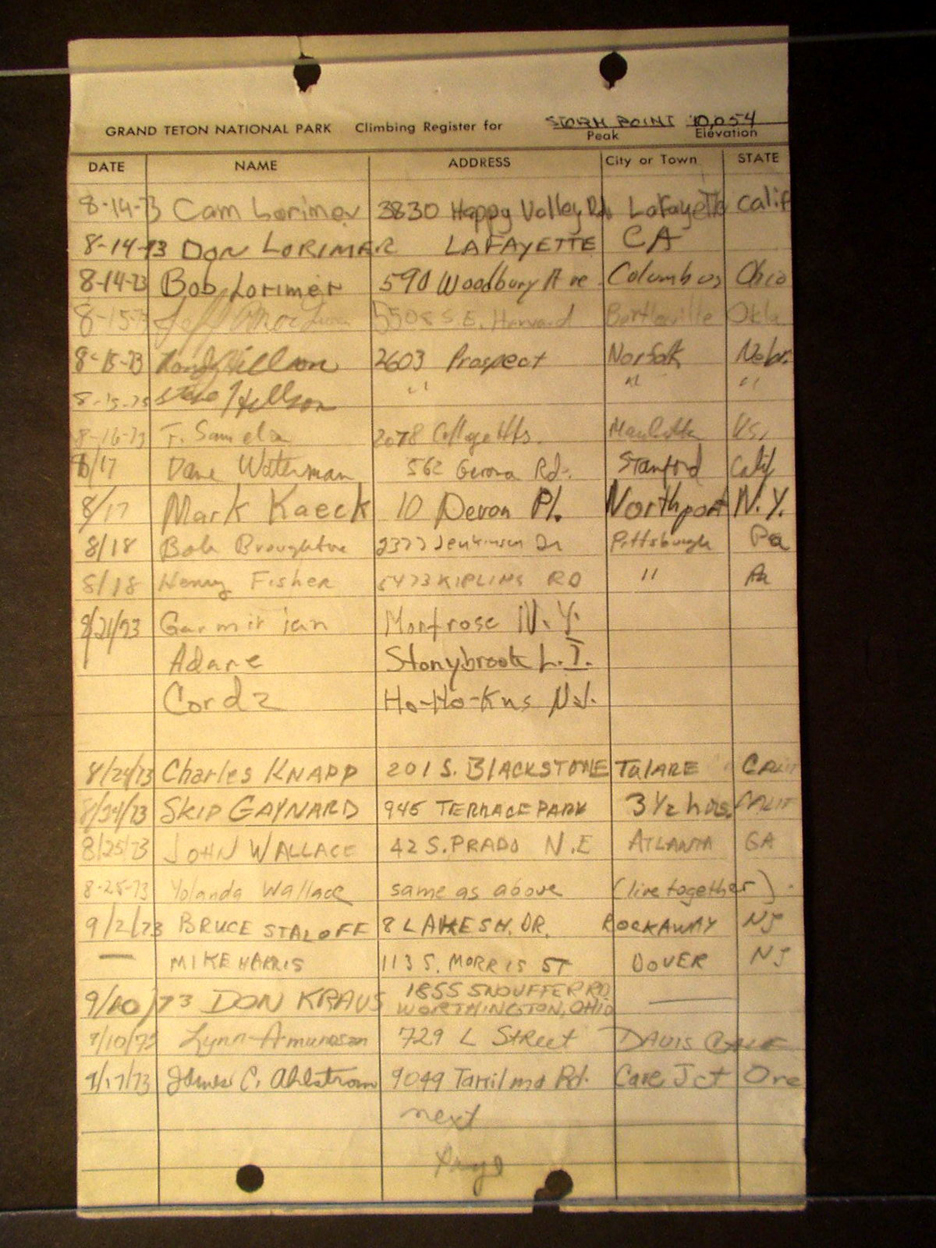 GRAND TETON NATIONAL PARK Climbing Register for STORM POINT 10,054
Peak Elevation
DATE NAME ADDRESS City or Town STATE
8-14-73 Cam Lorimer 3830 Happy Valley Rd. Lafayette Calif
8-14-73 DON LORIMER LAFAYETTE CA
8-14-73 Bob Lorimer 590 Woodbury Ave. Columbus Ohio
8-15-73 5508 S.E. Harvard Bartlesville Okla
8-15-73 2603 Prospect Norfolk Nebr.
8-15-73 Steve " " "
8-16-73 F. 2078 College Hts.
8/17 Dave Waterman 562 Gerona Rd. Stanford Calif
8/17 Mark Kaeck 10 Devon Pl. Northport N.Y.
8/18 Bob Broughton 2377 Jenkinson Dr Pittsburgh Pa
8/18 Henry Fisher 5473 KIPLING RD " Pa
8/21/73 Garmirian Montrose N.Y.
Adare Stonybrook L.I.
Cordz Ho-Ho-Kus N.J.
8/24/73 Charles KNAPP 201 S. BLACKSTONE TULARE CALIF
8/24/73 SKIP GAYNARD 945 TERRACE PARK 3 1/2 hrs. CALIF
8/25/73 JOHN WALLACE 42 S. PRADO N.E ATLANTA GA
8-25-73 Yolanda Wallace same as above (live together).
9/2/73 BRUCE STALOFF 8 LAKESH. DR. ROCKAWAY NJ
— MIKE HARRIS 113 S. MORRIS ST DOVER NJ
9/10/73 DON KRAUS 1855 SNOUFFER RD
WORTHINGTON, OHIO —
9/10/73 Lynn Amundson 729 L Street DAVIS CALIF
9/17/73 James C. Ahlstrom 9049 Rd. Cave Jct Ore
next
page